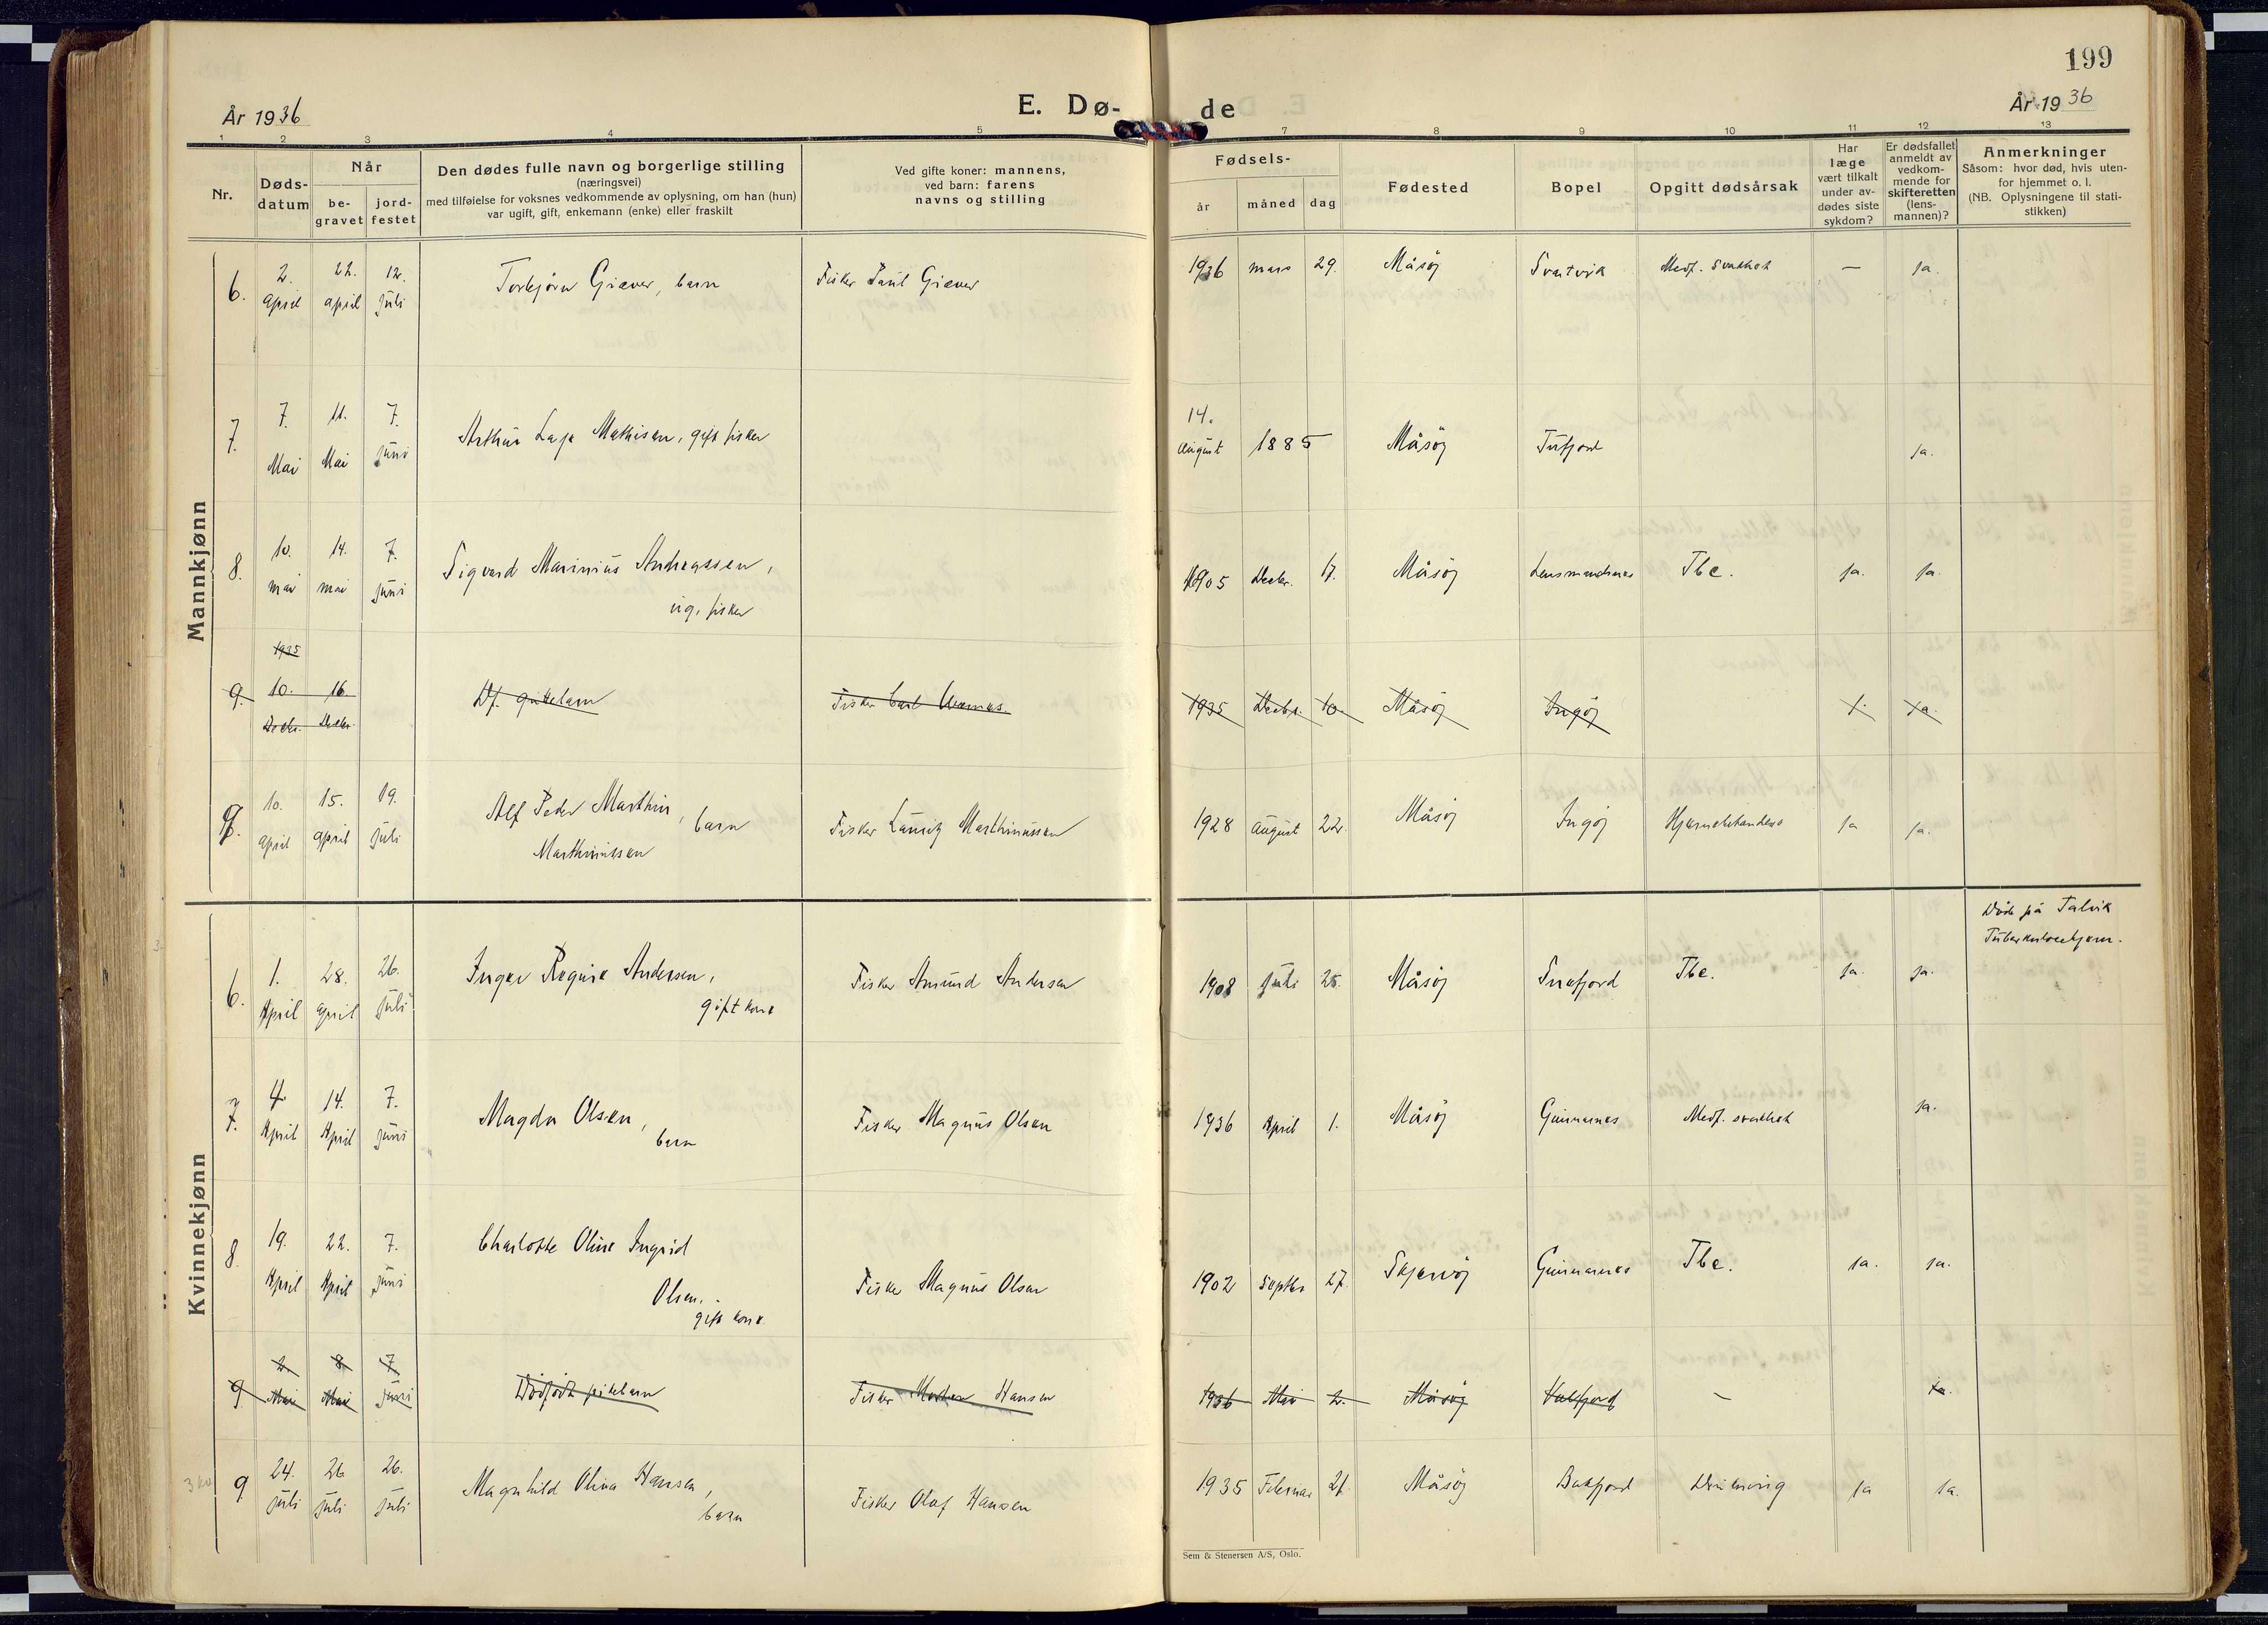 199
År 1936
E. Dø-
de
År 1936
1 2 3 4 5 7 8 9 10 11 12 13
Nr.
Døds-
datum
Når
be-
gravet
jord-
festet
Den dødes fulle navn og borgerlige stilling
(næringsvei)
med tilføielse for voksnes vedkommende av oplysning, om han (hun)
var ugift, gift, enkemann (enke) eller fraskilt
Ved gifte koner: mannens,
ved barn: farens
navns og stilling
Fødsels-
år
måned
dag
Fødested
Bopel
Opgitt dødsårsak
Har
læge
vært tilkalt
under av-
dødes siste
sykdom?
Er dødsfallet
anmeldt av
vedkom-
mende for
skifteretten
(lens-
mannen)?
Anmerkninger
Såsom: hvor død, hvis uten-
for hjemmet o. l.
(NB. Oplysningene til stati-
stikken)
Mannkjønn
6. 2. april 22. april 12. juli Torbjørn Giæver, barn Fisker Paul Giæver 1936 mars 29. Måsöy Svartvik Medf. svakhet — ja.
7. 7. Mai 11. Mai 7. juni Arthur Mathisen, gift fisker 14. august 1885 Måsöy Tufjord ja.
8. 10. mai 14. mai 7. juni Sigvard Marinius Andreassen,
ug. fisker
1905 Decbr. 17. Måsöy Tbc. ja. ja.
1935
9. 10. Decbr. 16. Decbr. Df. guttebarn Fisker Carl 1935 Decbr. 10. Måsöy Ingöy ja.
9. 10. april 15. april 19. juli Alf Peder Marthin, barn
Marthinussen
Fisker Lauritz Marthinussen 1928 august 22. Måsöy Ingöy ja ja.
Kvinnekjønn
6. 1. April 28. april 26. juli Inger Regine Andersen,
gift kone
Fisker Amund Andersen 1908 juli 25. Måsöy Snefjord Tbc. ja. ja.
Död på Talvik
Tuberkulosehjem.
7. 4. April 14. April 7. juni Magda Olsen,
barn
Fisker Magnus Olsen 1936 April 1. Måsöy Gunnarnes Medf. svakhet ja.
8. 19. April 22. April 7. juni Charlotte Oline Ingrid
Olsen,
gift kone
Fisker Magnus Olsen 1902 Septbr 27. Skjervöy Gunnarnes Tbc. ja. ja.
9 2. Mai 8. Mai 7. juni Dödfödt pikebarn Fisker Morten Hansen 1936 Mai 2. Måsöy — ja.
9 24. juli 26 juli 26. juli Magnhild Oliva Hansen,
barn
Fisker Olaf Hansen 1935 Februar 21. Måsöy Bakfjord ja ja.
Sem & Stenersen A/S, Oslo.